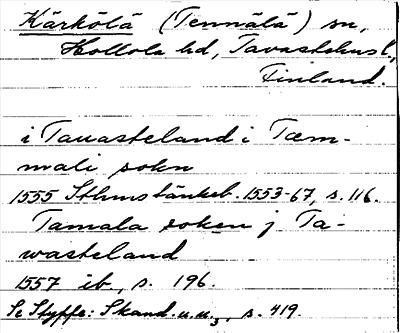 Kärkölä (Tennälä) sn,
Hollola hd, Tavastehus l.,
Finland.
i Tauasteland i Tæm-
mali sokn
1555 Sthms tänkeb. 1553-67, s. 116.
Tamala soken j Ta-
wasteland
1557 ib, s. 196.
Se Styffe: Skand. u. u.3, s. 419.